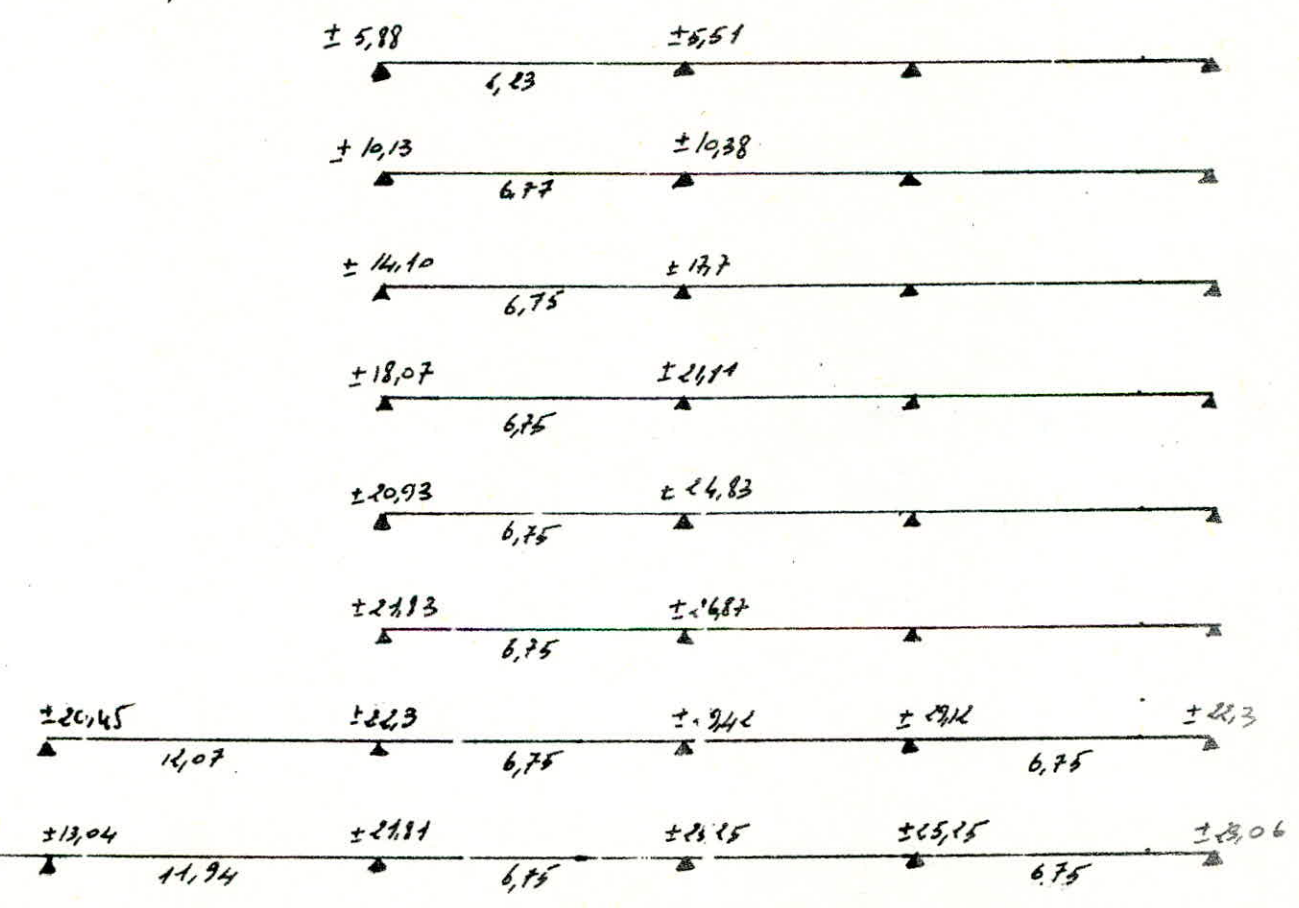 ± 5,88 ±5,51
6,23
± 10,13 ± 10,38
6,77
± 14,10 ± 17,7
6,75
±18,07 ± 21,11
6,75
±20,93 ± 24,83
6,75
±21,83 ±26,87
6,75
±20,45 ±22,3 ± 29,12 ± 22,3
12,07 6,75 6,75
±13,04 ±21,81 ±25,25 ±23,06
11,94 6,75 6,75